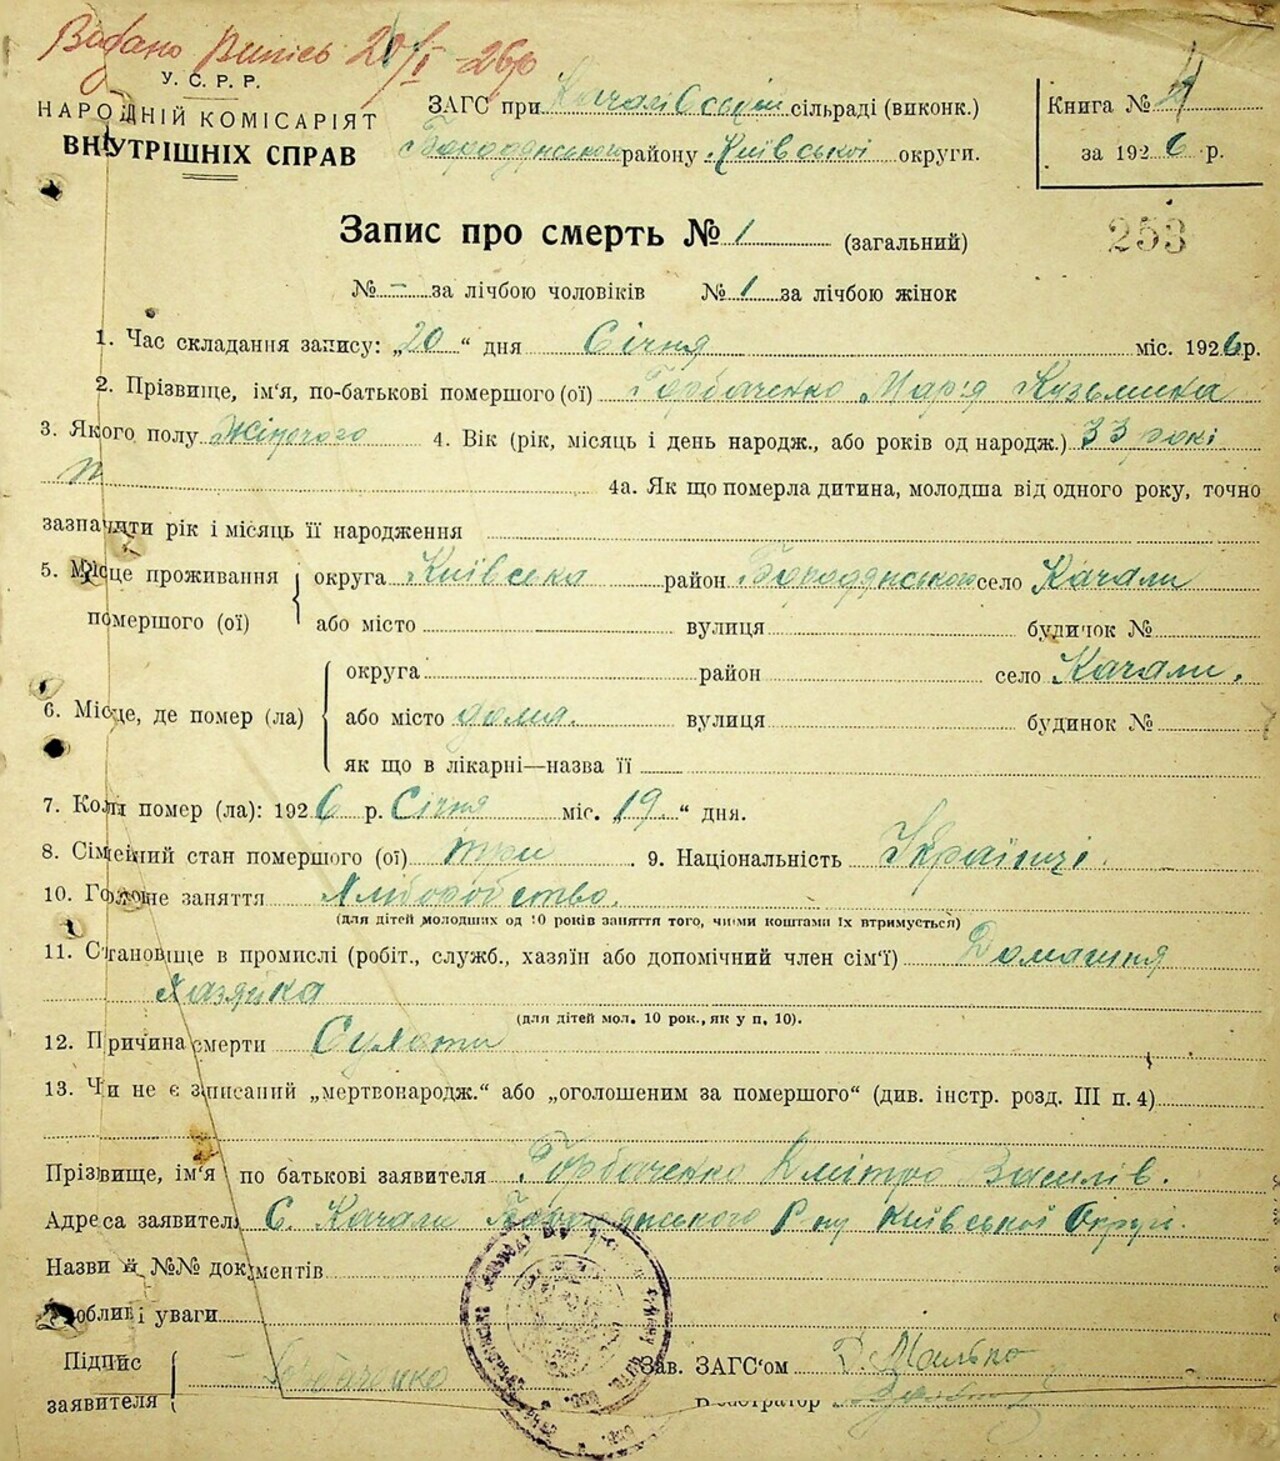 Видано Випись 20/I -26р
У. С. Р. Р.
НАРОДНІЙ КОМІСАРІЯТ
ВНУТРІШНІХ СПРАВ
ЗАГС при Качалівській сільраді (виконк.)
Бородянського району Київської округи.
Книга №
за 1926 р.
Запис про смерть № 1 (загальний)
253
№ - за лічбою чоловіків № 1 за лічбою жінок
1. Час складання запису: „20“ дня Січня міс. 1926 р.
2. Прізвище, ім'я, по-батькові помершого (ої) Горбаченко Мар'я Кузьмина
3. Якого полу Жіночого 4. Вік (рік, місяць і день народж., або років од народж.) 33 рокі
в
4а. Як що померла дитина, молодша від одного року, точно
зазначити рік і місяць її народження
5. Місце проживання округа Київська район Бородянського село Качали
помершого (ої) або місто вулиця будинок №
округа район село Качали.
6. Місце, де помер (ла) або місто дома. вулиця будинок №
як що в лікарні—назва її
7. Коли помер (ла): 1926 р. Січня міс. „19.“ дня.
8. Сімейний стан помершого (ої) три. 9. Національність Українці.
10. Головне заняття Хліборобство.
(для дітей молодших од 10 років заняття того, чиїми коштами їх втримується)
11. Становище в промислі (робіт., служб., хазяїн або допомічний член сім'ї) Домашня
Хазяйка
(для дітей мол. 10 рок., як у п. 10).
12. Причина смерти Сухоти
13. Чи не є записаний „мертвонародж.“ або „оголошеним за помершого“ (див. інстр. розд. III п. 4)
Прізвище, ім'я по батькові заявителя Горбаченко Дмітро Василів.
Адреса заявителя С. Качали Бородянського Р-ну Київської Округі.
Назви й №№ документів
Особливі уваги
Підпис
заявителя Горбаченко
Зав. ЗАГС'ом
Реєстратор